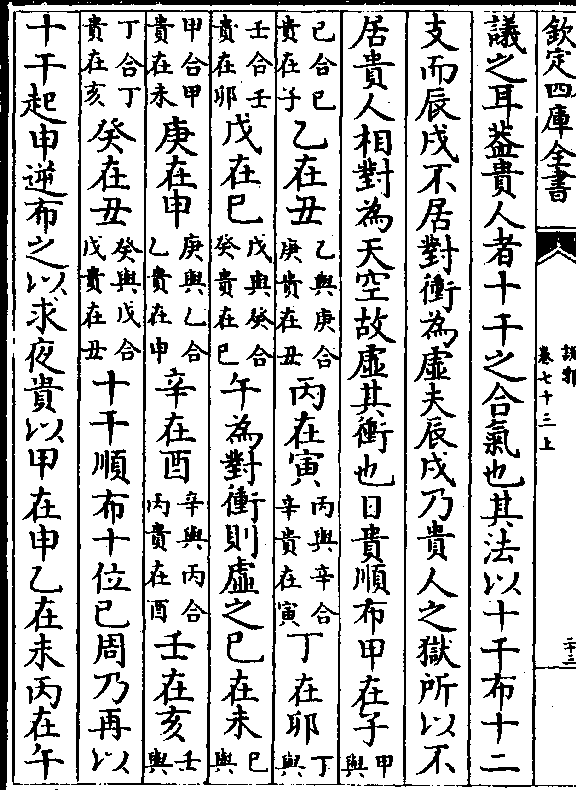 欽定四庫全書
說郛
卷七十三上
議之耳葢貴人者十干之合氣也其法以十干布十二
支而辰戌不居對衝為虛夫辰戌乃貴人之獄所以不
居貴人相對為天空故虛其衝也日貴順布甲在子甲與
巳合巳貴在子乙在丑乙與庚合庚貴在丑丙在寅丙與辛合辛貴在寅丁在卯丁與
壬合壬貴在卯戊在巳戊與癸合癸貴在巳午為對衝則虛之巳在未巳與
甲合甲貴在未庚在申庚與乙合乙貴在申辛在酉辛與丙合丙貴在酉壬在亥壬與
丁合丁貴在亥癸在丑癸與戊合戊貴在丑十干順布十位已周乃再以
十干起申逆布之以求夜貴以甲在申乙在未丙在午